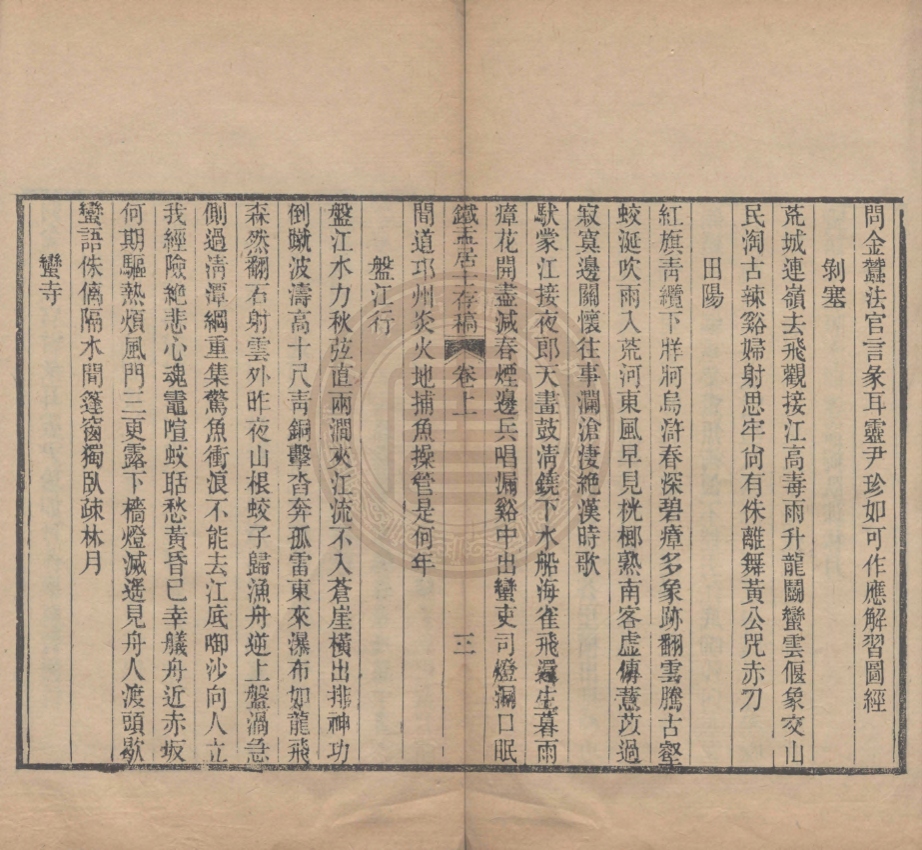 問金蠶法官言彖耳靈尹珍如可作應解習圖經
剝塞
荒城連嶺去飛觀接江高毒雨升龍鬭蠻雲偃象交山
民淘古辣谿婦射思牢尙有侏離舞黃公咒赤刀
田陽
紅旗靑纜下牂牁烏滸春深碧瘴多象跡翻雲騰古壑
蛟涎吹雨入荒河東風早見桄榔熟南客虛傳薏苡過
寂寞邊關懷往事瀾滄淒絕漢時歌
馱蒙江接夜郎天畫鼓淸鐃下水船海雀飛還生暮雨
瘴花開盡減春煙邊兵唱漏谿中出蠻吏司燈洞口眠
聞道邛州炎火地捕魚操管是何年
鐵盂居士存稿 卷上 三
盤江行
盤江水力秋弦直兩澗夾江流不入蒼崖橫出排神功
倒蹴波濤高十尺靑銅鑿沓奔孤雷東來瀑布如龍飛
森然翻石射雲外昨夜山根蛟子歸漁舟逆上盤渦急
側過淸潭綱重集驚魚衝浪不能去江底啣沙向人立
我經險絕悲心魂鼉喧蚊聒愁黃昏已幸艤舟近赤坂
何期驅熱煩風門三更露下檣燈滅遙見舟人渡頭歇
蠻語侏儷隔水聞篷窗獨臥疎林月
蠻寺